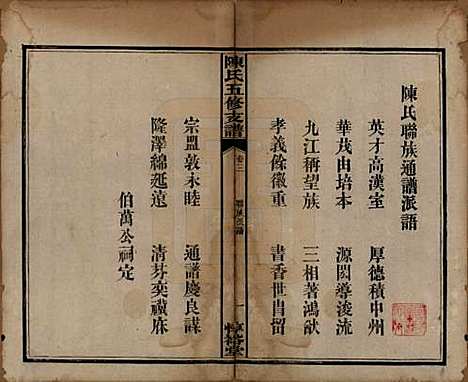 陳氏聯族通譜派語
英才高漢室　厚德積中州
華茂由培本　源閎導浚流
九江稱望族　三相著鴻猷
孝義餘徽重　書香世昌留
陳氏五修支譜
卷二
聯族派語
一
惇裕堂
宗盟敦永睦　通譜慶良謀
隆澤綿延遠　清芬奕禩庥
伯萬公祠定